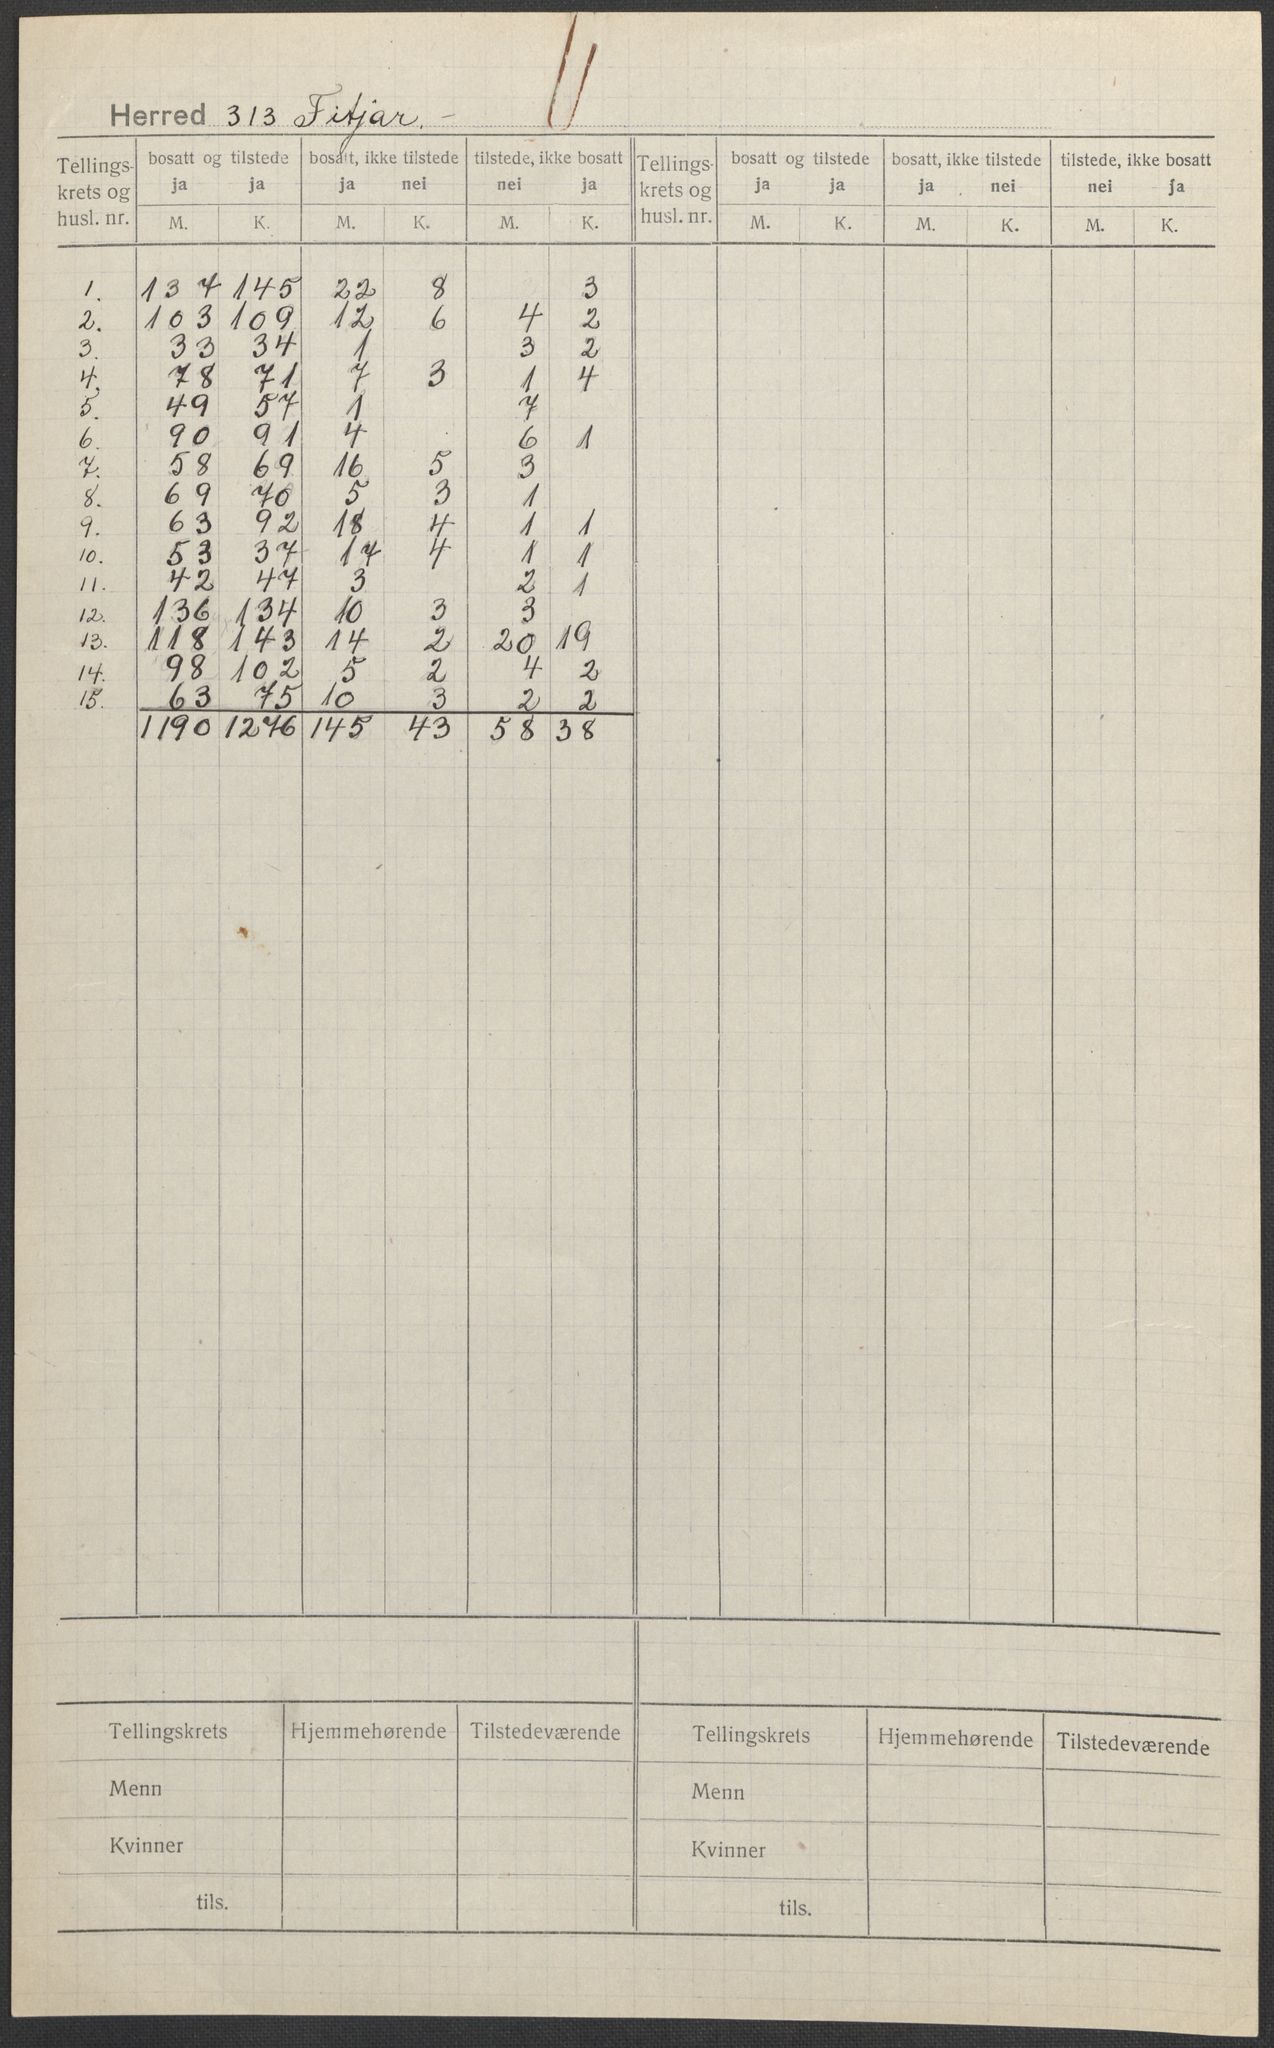 Herred 313 Fitjar. -
Tellings- krets og husl. nr. | bosatt og tilstede ja ja | bosatt, ikke tilstede ja nei | tilstede, ikke bosatt nei ja | Tellings- krets og husl. nr. | bosatt og tilstede ja ja | bosatt, ikke tilstede ja nei | tilstede, ikke bosatt nei ja
M. K. M. K. M. K. M. K. M. K. M. K.
1. 137 145 22 8 3
2. 103 109 12 6 4 2
3. 33 34 1 3 2
4. 78 71 7 3 1 4
5. 49 57 1 7
6. 90 91 4 6 1
7. 58 69 16 5 3
8. 69 70 5 3 1
9. 63 92 18 4 1 1
10. 53 37 17 4 1 1
11. 42 47 3 2 1
12. 136 134 10 3 3
13. 118 143 14 2 20 19
14. 98 102 5 2 4 2
15. 63 75 10 3 2 2
1190 1276 145 43 58 38
Tellingskrets Hjemmehørende Tilstedeværende Tellingskrets Hjemmehørende Tilstedeværende
Menn Menn
Kvinner Kvinner
tils. tils.